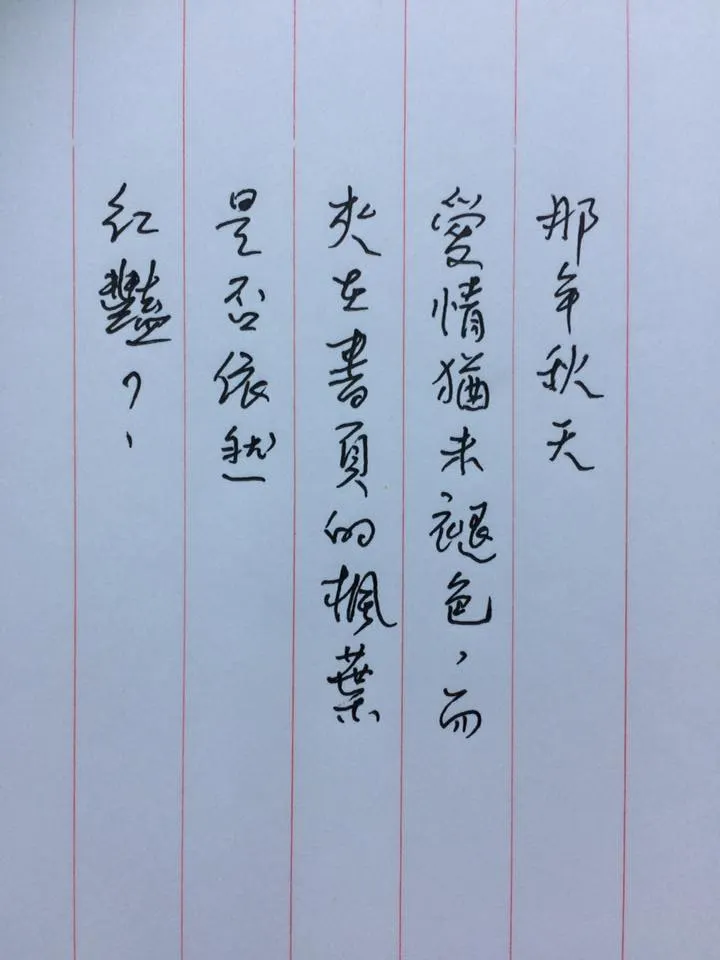 那年秋天
愛情猶未褪色，而
夾在書頁的楓葉
是否依然
紅豔？